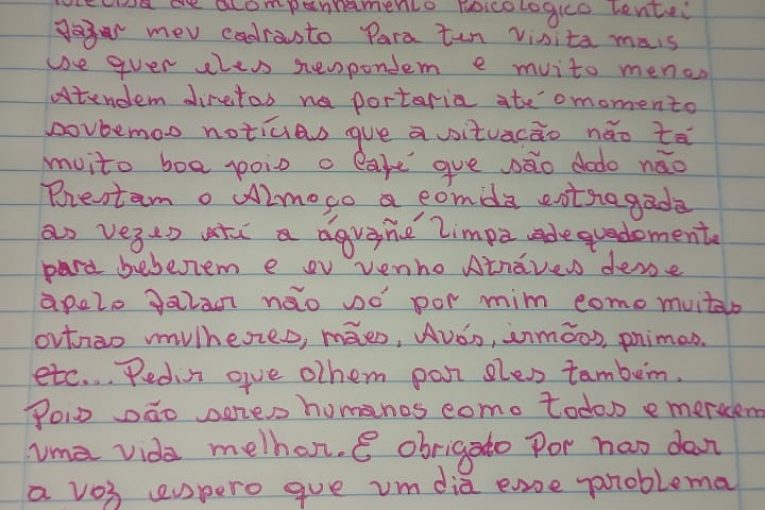 precisa de acompanhamento Psicologico Tentei
fazer meu cadrasto Para ter visita mais
se quer eles respondem e muito menos
Atendem direitos na portaria até omomento
soubemos notícias que a situação não tá
muito boa pois o Café que são dado não
Prestam o Almoço a comida estragada
as vezes até a água ñe limpa adequadomente
para beberem e eu venho Atráves desse
apelo falar não só por mim como muitas
outras mulheres, mães, Avós, irmãos, primos.
etc... Pedir que olhem por eles também.
Pois são seres humanos como todos e merecem
uma vida melhor. E obrigado Por nas dar
a voz espero que um dia esse problema